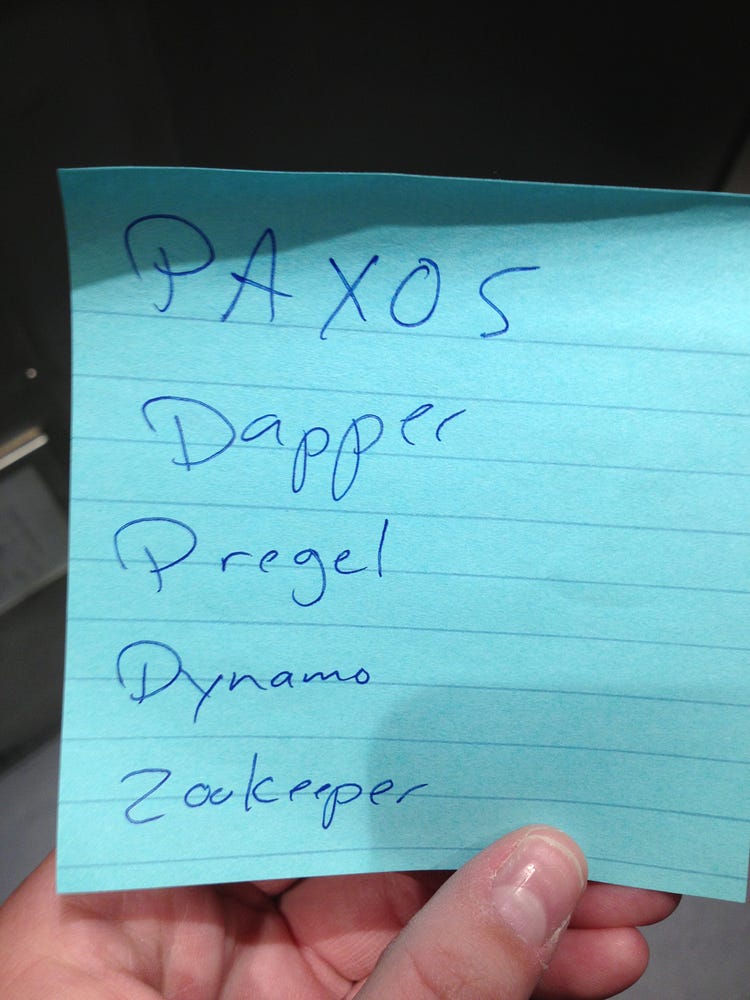 PAXOS
Dapper
Pregel
Dynamo
Zookeeper